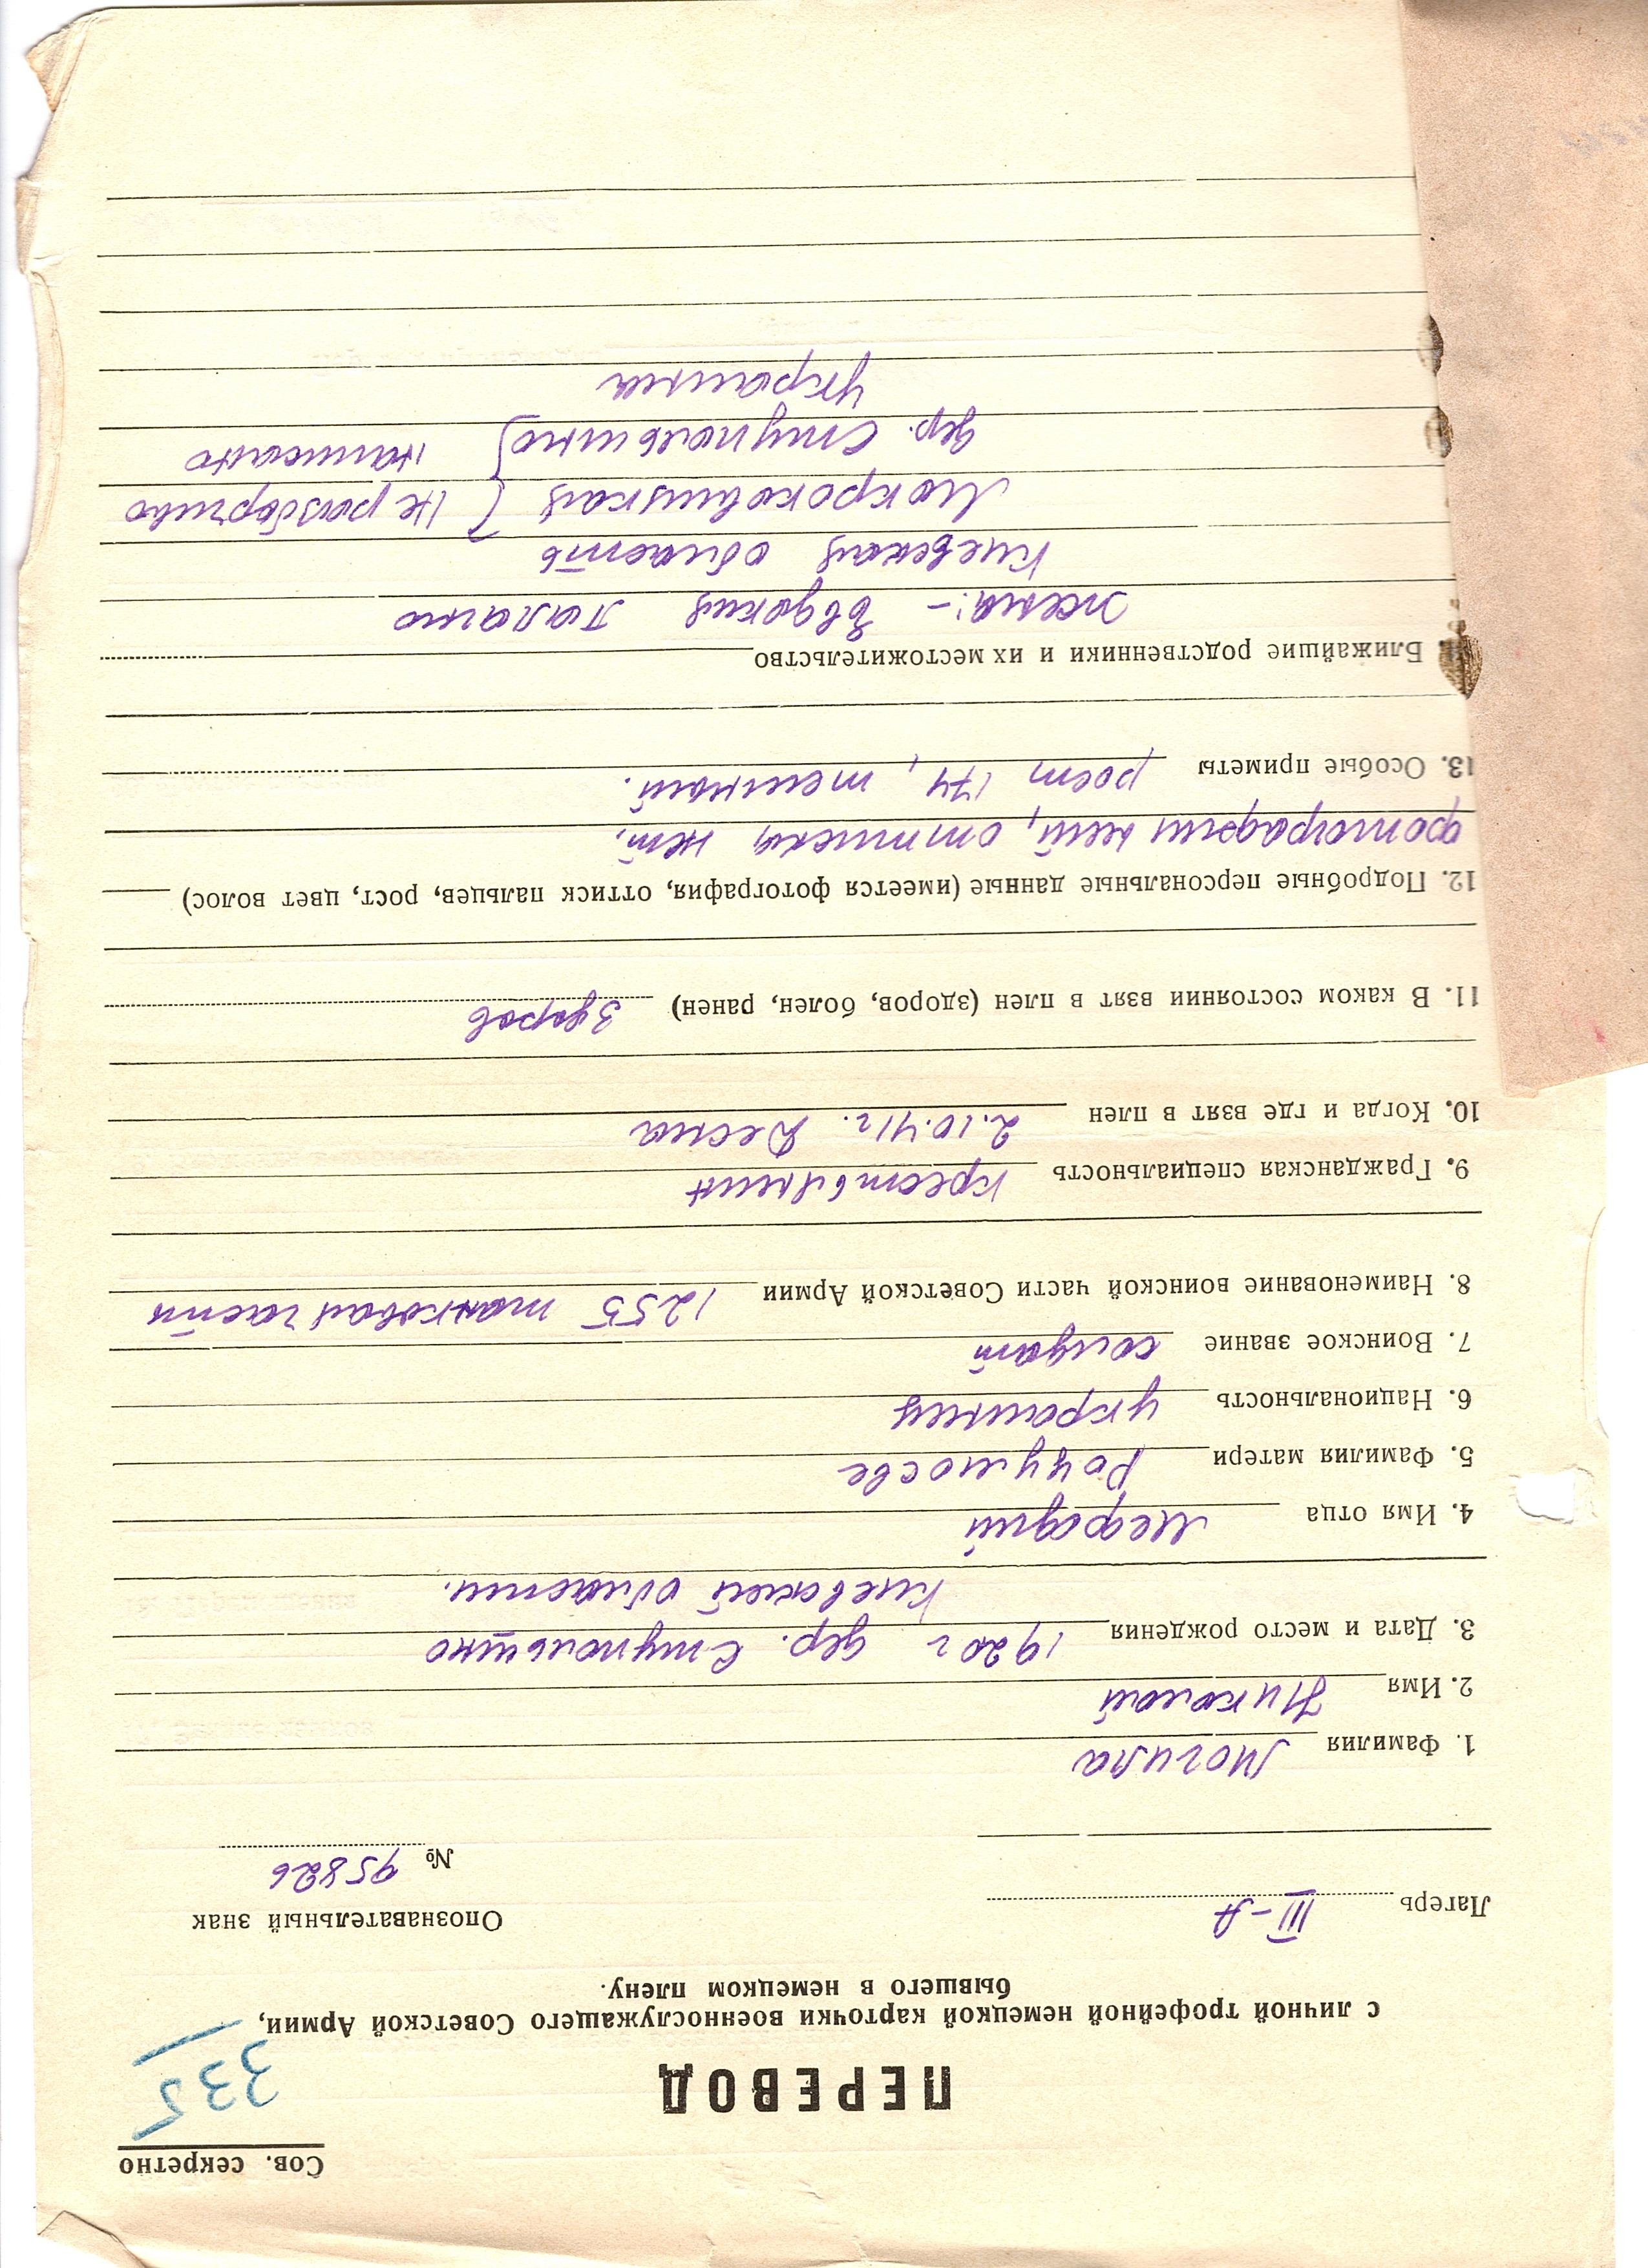 Сов. секретно
335
ПЕРЕВОД
с личной трофейной немецкой карточки военнослужащего Советской Армии,
бывшего в немецком плену.
Лагерь III-А
Опознавательный знак
№ 95826
1. Фамилия Могила
2. Имя Николай
3. Дата и место рождения 1920 г дер. Ступольшно
Киевской области.
4. Имя отца Мефодий
5. Фамилия матери
6. Национальность украинец
7. Воинское звание солдат
8. Наименование воинской части Советской Армии 1255 танковая часть
9. Гражданская специальность крестьянин
10. Когда и где взят в плен 2.10.41 г. Десна
11. В каком состоянии взят в плен (здоров, болен, ранен) здоров
12. Подробные персональные данные (имеется фотография, оттиск пальцев, рост, цвет волос)
фотографии нет, оттиска нет.
13. Особые приметы рост 174, темный.
Ближайшие родственники и их местожительство
жена:- Евдокия
Киевская область
Мокрокалиская } не разборчиво
дер. Ступольшно } написано
Украина